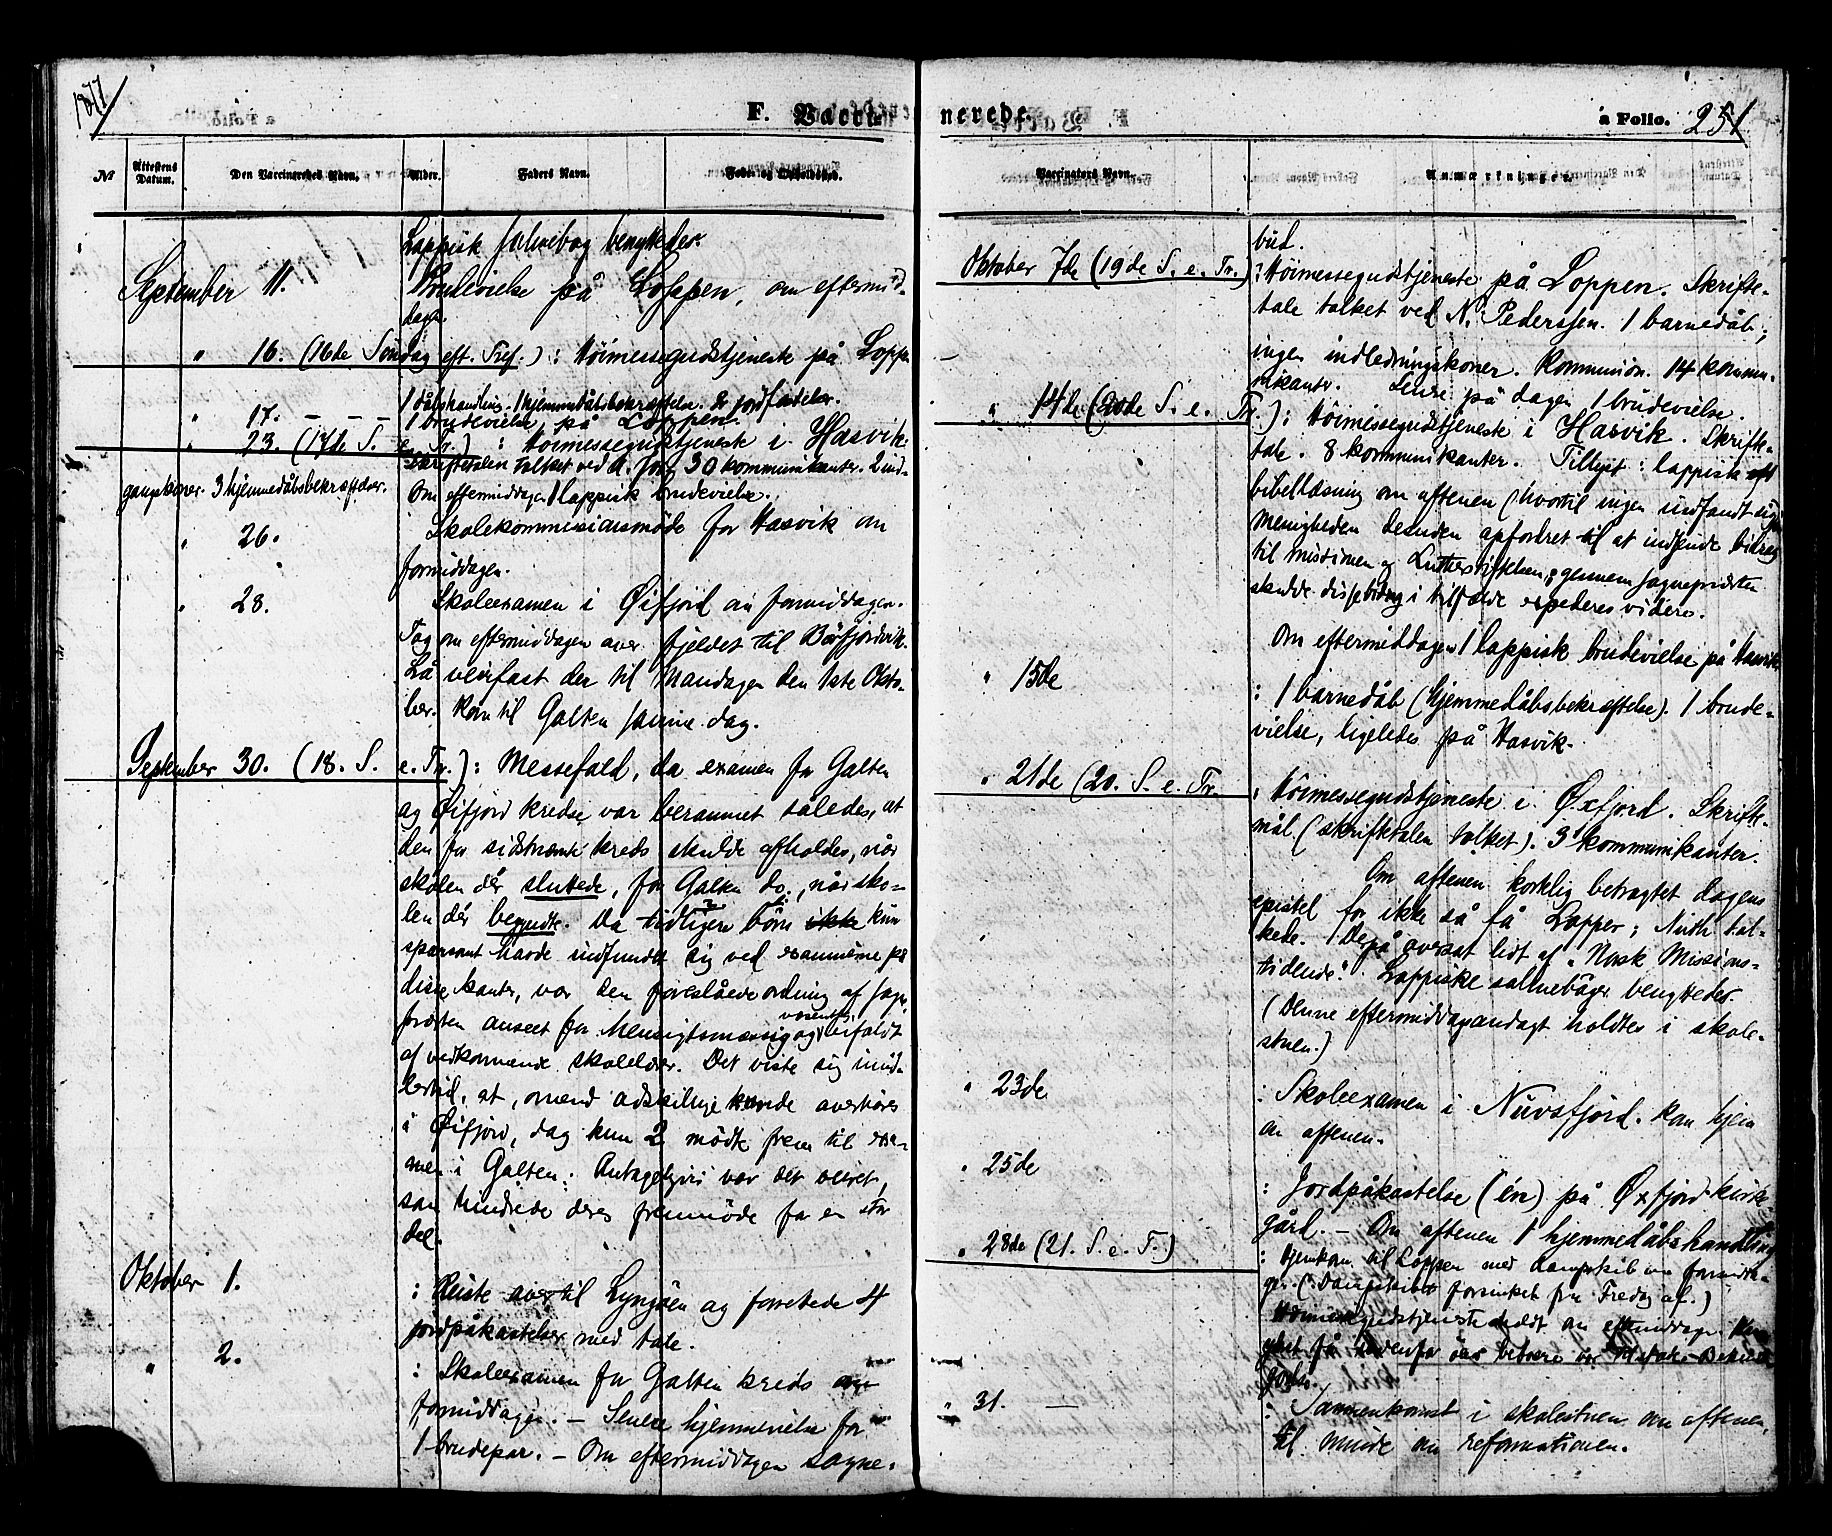 1877
F. Vaccinerede.
à Folio. 251
№
Attestens Datum.
Den Vaccineredes Navn.
Alder.
Faders Navn.
Føde- og Opholdssted.
Vaccinators Navn.
Anmærkninger.
Lappisk salmebog benyttedes.
September 11. Brudevielse på Loppen, om eftermid-
dagen.
" 16. (16de Søndag eft. Tref.): Høimessegudstjeneste på Loppen
1 dåbshandling. 1 hjemmedåbsbekræftelse. 2 jordfæstelser.
" 17. – – – 1 brudevielse på Loppen.
" 23. (17de S. e. Tr.): Høimessegudstjeneste i Hasvik.
Skriftetalen tolket ved 30 kommunikanter. 2 ind-
gangskoner. 3 hjemmedåbsbekræftelser. Om eftermiddagen 1 lappisk brudevielse.
" 26. Skolekommissionsmøde for Hasvik om
formiddagen.
" 28. Skoleexamen i Øifjord om formiddagen.
Tog om eftermiddagen over fjeldet til Børfjordvik.
Lå veirfast der til Mandagen den 1ste Okto-
ber. Kom til Galten samme dag.
September 30. (18. S. e. Tr.): Messefald, da examen for Galten
og Øifjord kredse var berammet således, at
den for sidstnævnte kreds skulde afholdes, når
skolen dér sluttede, for Galten do., når sko-
len dér begyndte. Da tidligere børn ikke kun
sparsomt havde indfundet sig ved examinerne på
disse kanter, var den foreslåede ordning af sogne-
præsten anseet for hensigtsmæssig og bifaldt
af vedkommende skolelærer. Det viste sig imid-
lertid, at, omend adskillige kunde overhøres
i Øifjord, dog kun 2 mødte frem til exa-
men i Galten. Antageligvis var det veiret,
som hindrede deres fremmøde for en stor
del.
Oktober 1. : Reiste over til Lyngøen og forrettede 4
jordpåkastelser med tale.
" 2. : Skoleexamen for Galten kreds om
formiddagen. – Senere hjemmevielse for
1 brudepar. – Om eftermiddagen sogne-
bud.
Oktober 7de (19de S. e. Tr.): Høimessegudstjeneste på Loppen. Skrifte-
tale tolket ved N. Pederssen. 1 barnedåb;
ingen indledningskoner. Kommunion. 14 kommu-
nikanter. Senere på dagen 1 brudevielse.
" 14de (20de S. e. Tr.): Høimessegudstjeneste i Hasvik. Skrifte-
tale. 8 kommunikanter. Tillyst: lappisk
bibellæsning om aftenen (hvortil ingen indfandt sig)
Menigheden desuden opfordret til at indsende bidrag
til missionen og Lutherstiftelsen; gennem sognepræsten
skulde disse bidrag i tilfælde expederes videre.
Om eftermiddagen 1 lappisk brudevielse på Hasvik.
" 15de : 1 barnedåb (hjemmedåbsbekræftelse). 1 brude-
vielse, ligeledes på Hasvik.
" 21de (20. S. e. Tr. : Høimessegudstjeneste i Øxfjord. Skrifte-
mål (skriftetalen tolket). 3 kommunikanter.
Om aftenen kortelig betragtet dagens
epistel for ikke så få Lapper; Nuth tol-
kede. Derpå oversat lidt af "Norsk Missions-
tidende". Lappiske salmebøger benyttedes.
(Denne eftermiddagsandagt holdtes i skole-
stuen.)
" 23de : Skoleexamen i Nuvsfjord. kom hjem
om aftenen.
" 25de : Jordpåkastelse (én) på Øxfjord kirke-
gård. – Om aftenen 1 hjemmedåbshandling
" 28de (21. S. e. T.) : Hjemkom til Loppen med dampskib om formidda-
gen. (Dampskibet forsinket fra Fredag af.)
Høimessegudstjeneste holdt om eftermiddagen.
" 31. — : Sammenkomst i skolestuen om aftenen,
til minde om reformationen.